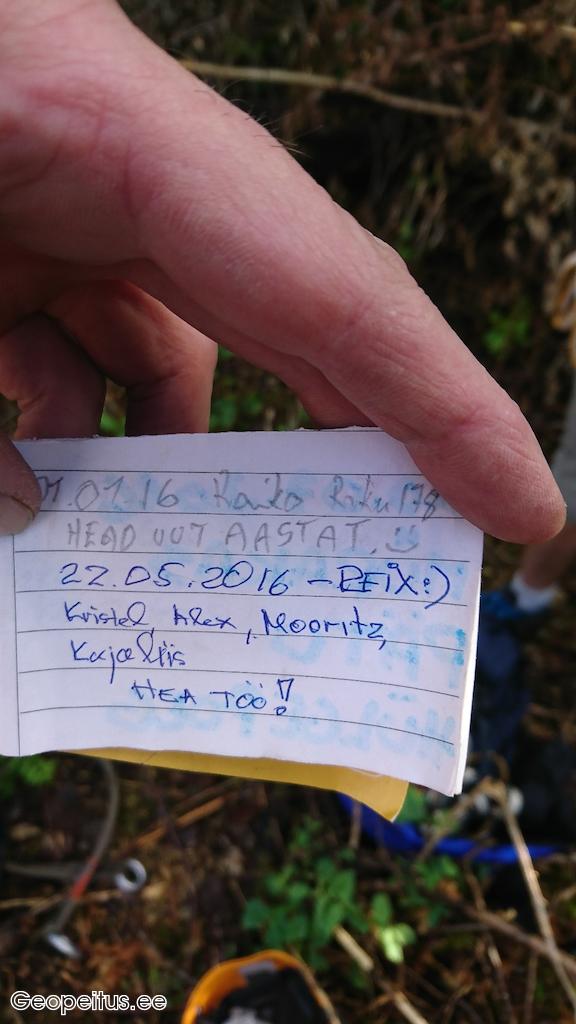 01.01.16 Raiko Riku178
HEAD UUT AASTAT. :)
22.05.2016 - REIX:)
Kristel Alex, Mooritz,
Kaja &
HEA TÖÖ!
Geopeitus.ee